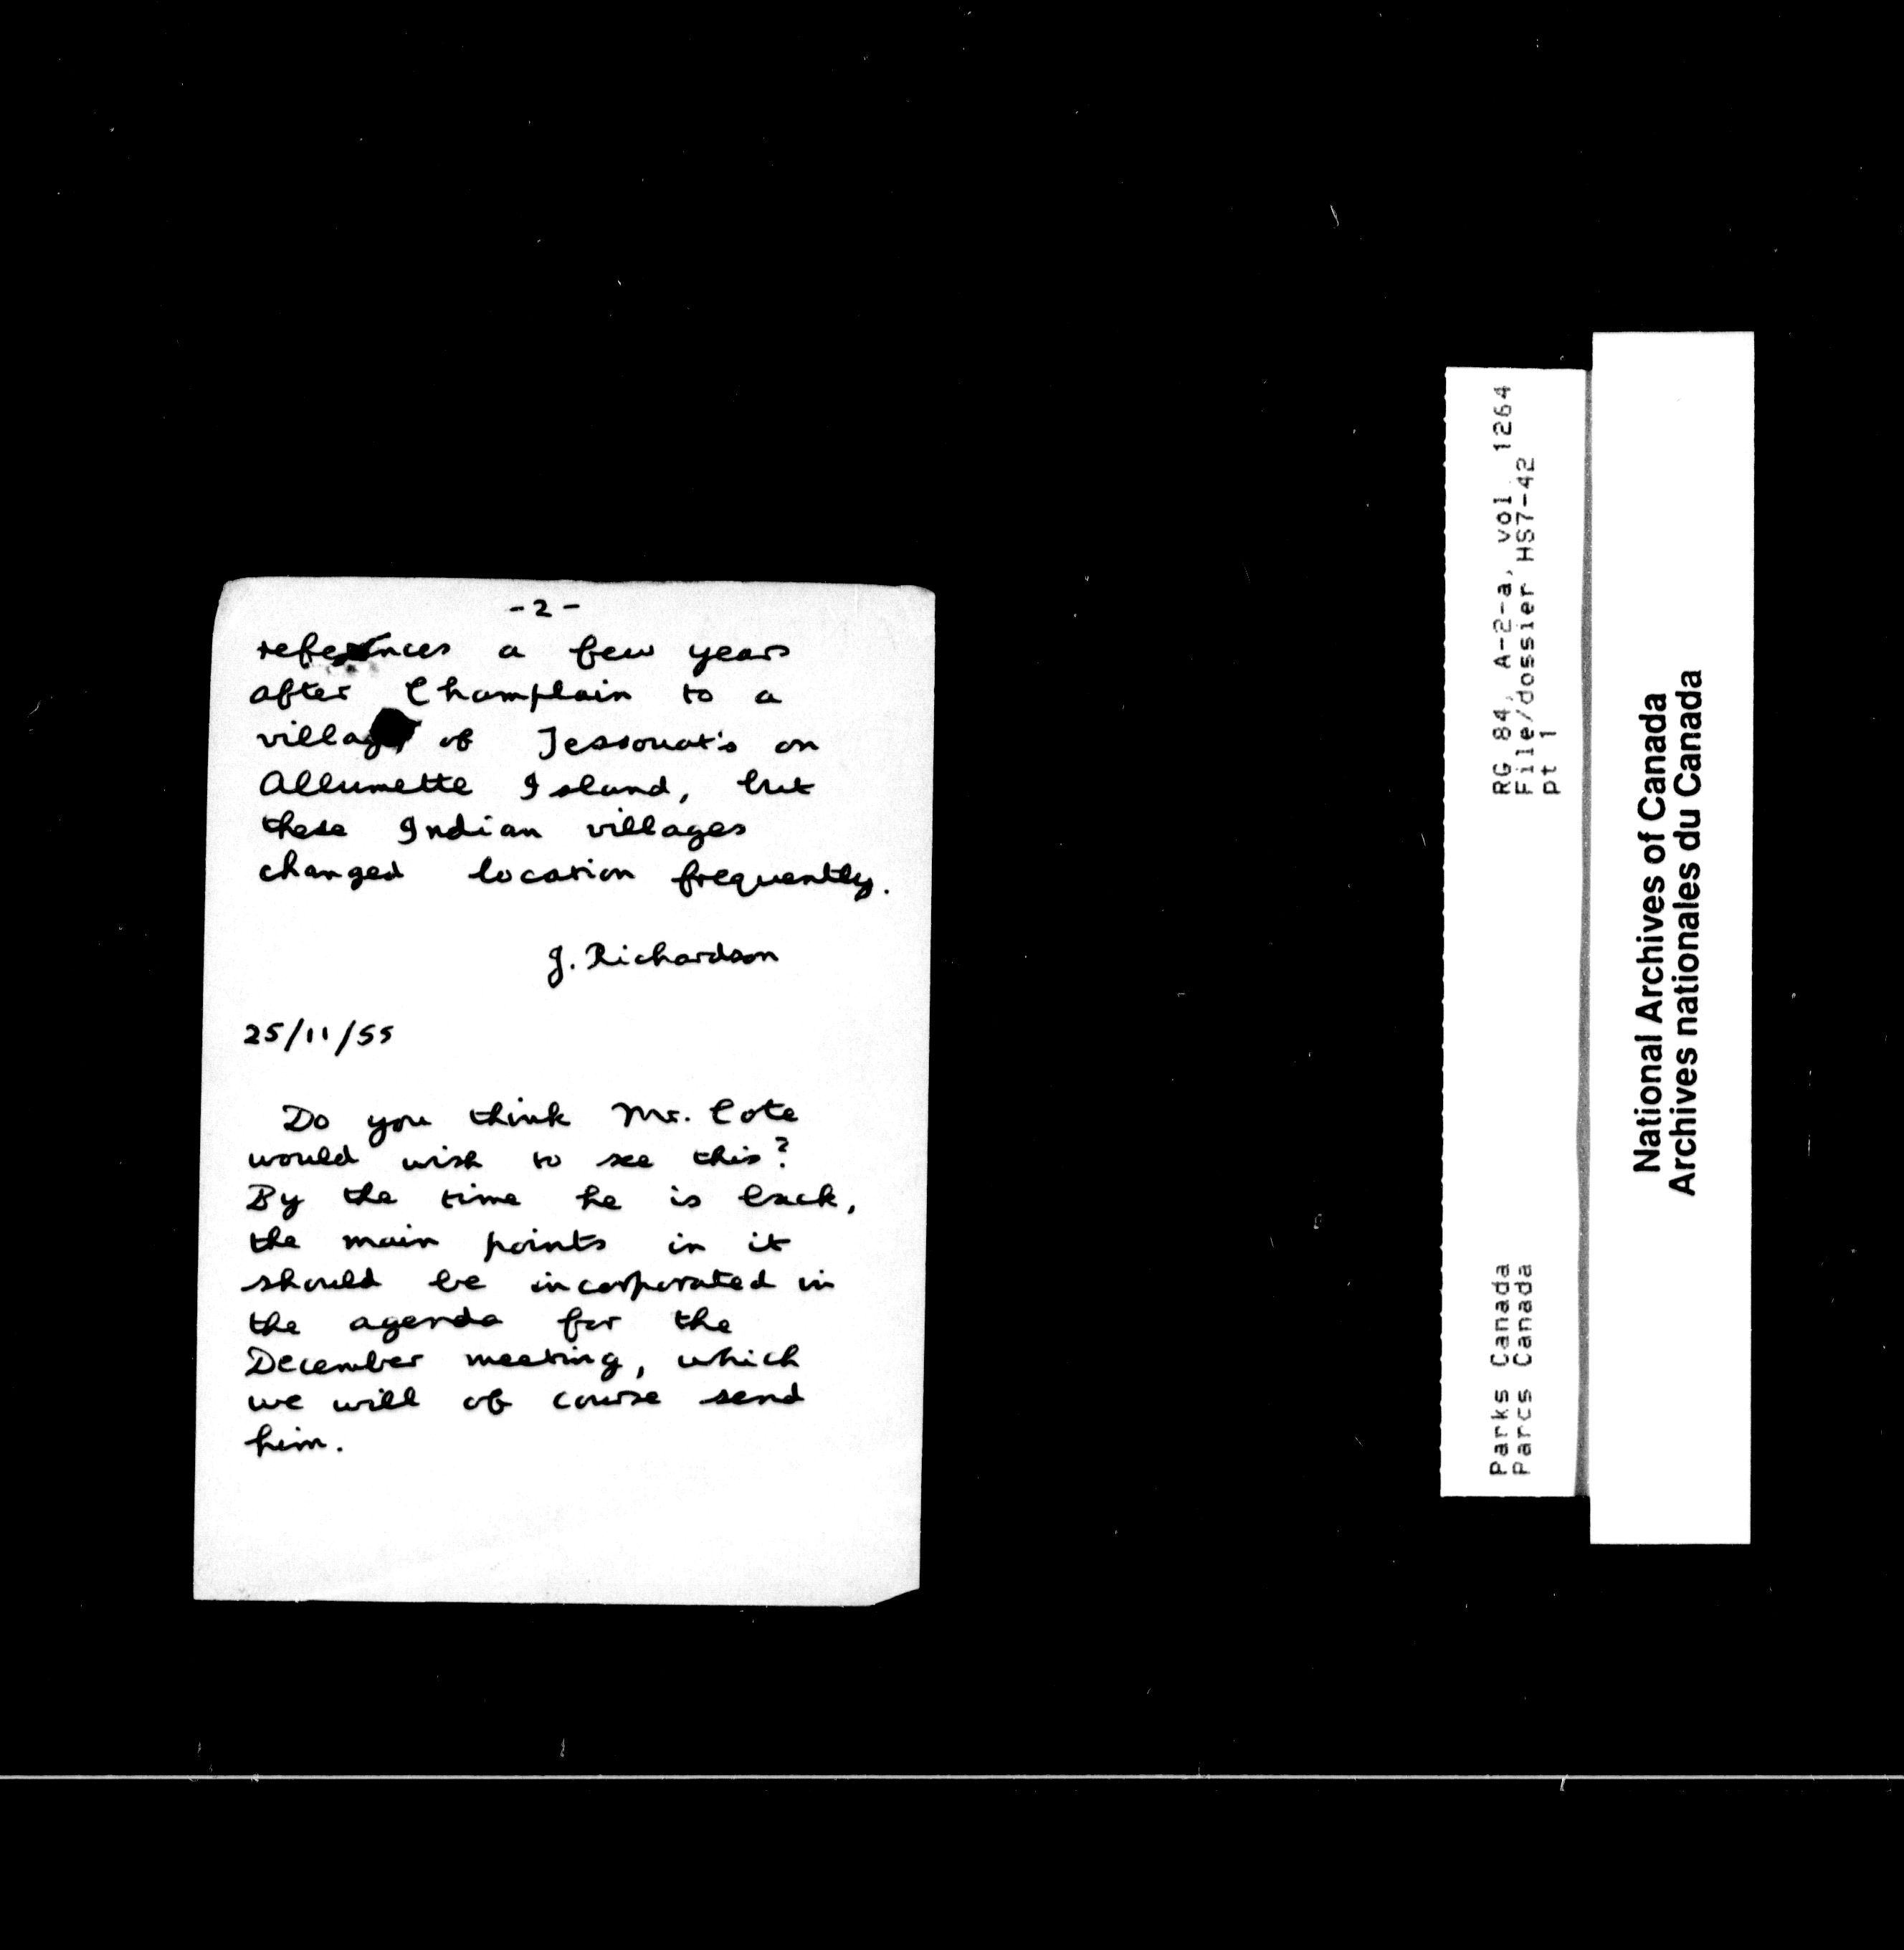 -2-
references a few years
after Champlain to a
village of Tessouat's on
Allumette Island, but
these Indian villages
changed location frequently.
J. Richardson
25/11/55
Do you think Mr. Cote
would wish to see this?
By the time he is back,
the main points in it
should be incorporated in
the agenda for the
December meeting, which
we will of course send
him.
RG 84, A-2-a, vol. 1264
File/dossier HS7-42
pt 1
Parks Canada
Parcs Canada
National Archives of Canada
Archives nationales du Canada